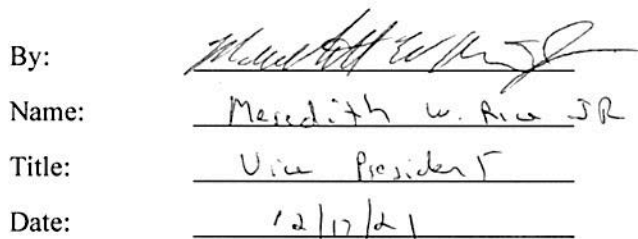 By:
Name: Meredith W. Rice JR
Title: Vice President
Date: 12/17/21